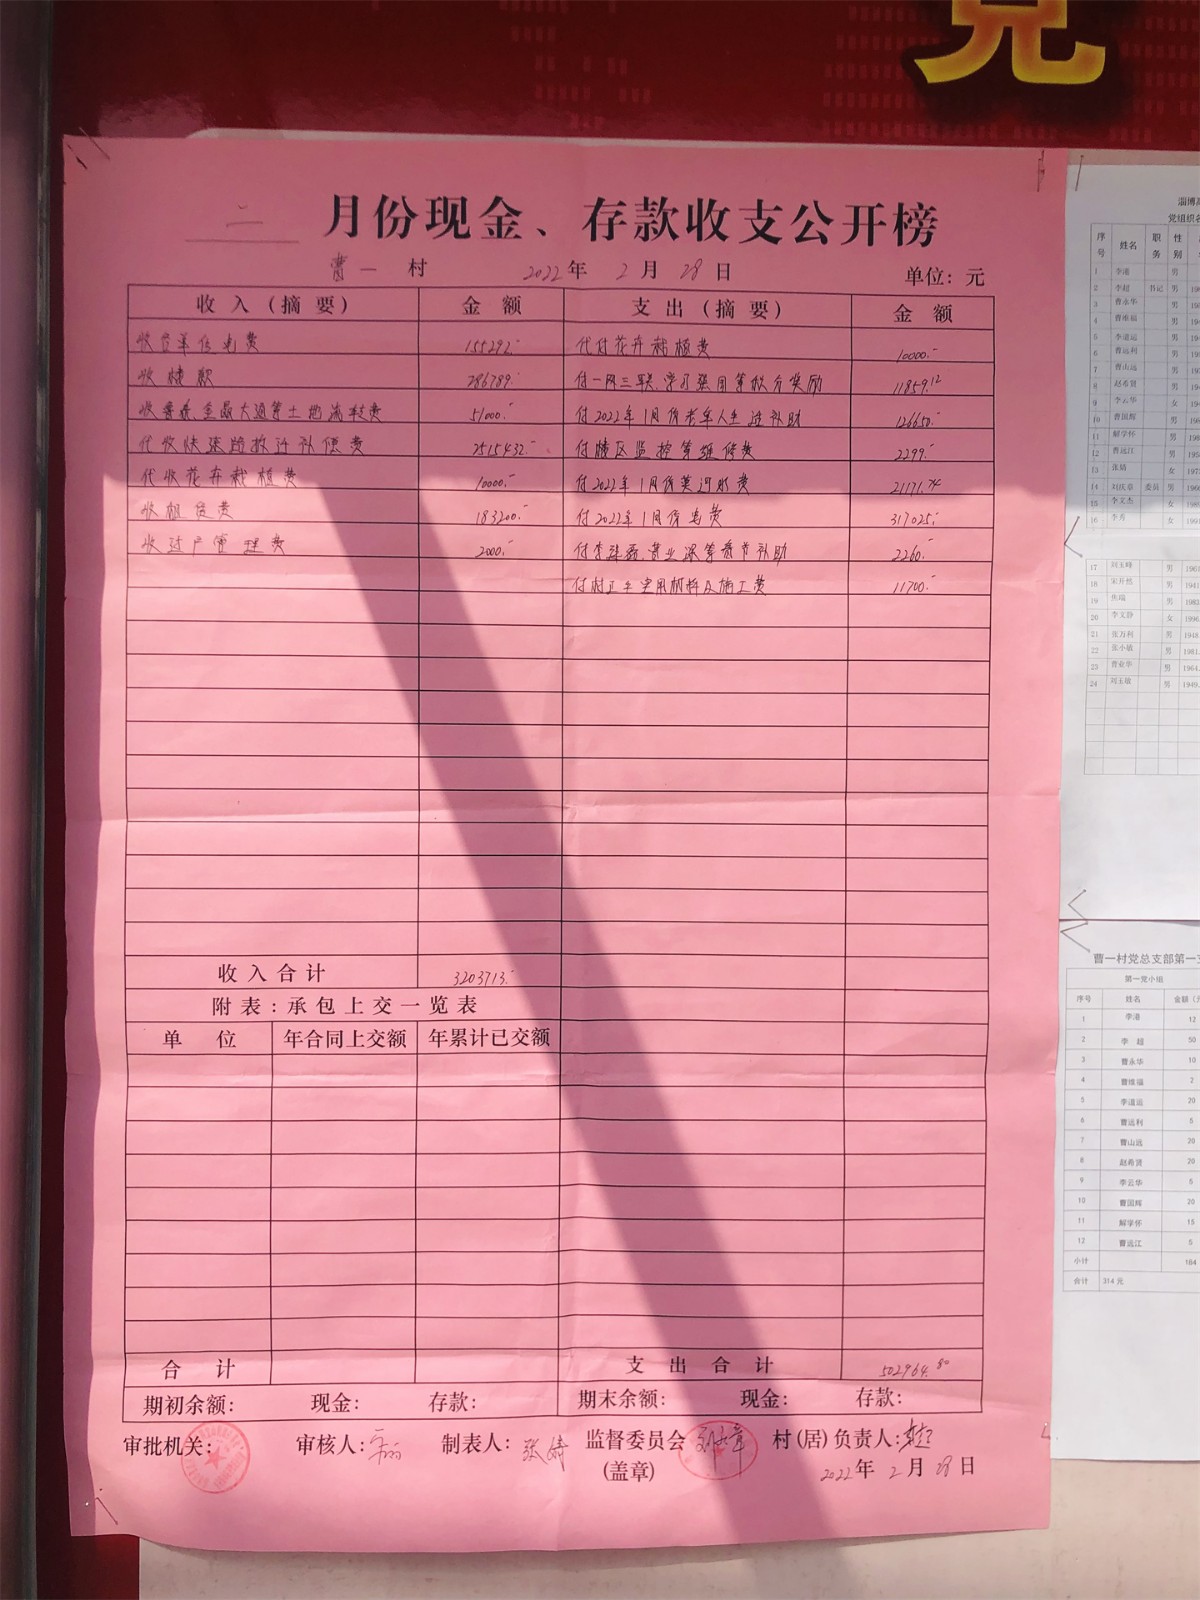 党
二 月份现金、存款收支公开榜
曹一 村 2022年 2月 28日 单位：元
收入(摘要) 金额 支出(摘要) 金额
收各单位电费 155292.- 代付花卉栽植费 10000.-
收楼款 286789.- 付一网三联、学习强国等积分奖励 11859.12
51000.- 付2022年1月份老年人生活补助 126650.-
代收快速路拆迁补偿费 2515432.- 付楼区监控等维修费 2299.-
代收花卉栽植费 10000.- 付2022年1月份黄河水费 21171.74
收租赁费 183200.- 付2022年1月份电费 317025.-
收过户管理费 2000.- 2260.-
11700.-
收入合计 3203713.-
附表：承包上交一览表
单位 年合同上交额 年累计已交额
合计 支出合计 502964.80
期初余额： 现金： 存款： 期末余额： 现金： 存款：
审批机关： 审核人： 制表人：张婧 监督委员会 刘庆章 村(居)负责人：李超
(盖章) 2022年 2月 28日
淄博高
党组织名
序号 姓名 职务 性别
1 李港 男
2 李超 书记 男
3 曹永华 男
4 曹维福 男
5 李道运 男
6 曹远利 男
7 曹山远 男
8 赵希贤 男
9 李云华 女
10 曹国辉 男
11 解学怀 男
12 曹远江 男
13 张婧 女
14 刘庆章 委员 男
15 李文杰 女
16 李秀 女
17 刘玉峰 男 1961
18 宋井然 男 1941
19 焦瑞 男 1983
20 李文静 女 1996
21 张万利 男 1948
22 张小敏 男 1981
23 曹业华 男 1964
24 刘玉敏 男 1949
曹一村党总支部第一支
第一党小组
序号 姓名 金额（元
1 李港 12
2 李超 50
3 曹永华 10
4 曹维福 2
5 李道运 20
6 曹远利 5
7 曹山远 20
8 赵希贤 20
9 李云华 5
10 曹国辉 20
11 解学怀 15
12 曹远江 5
小计 184
合计 314元